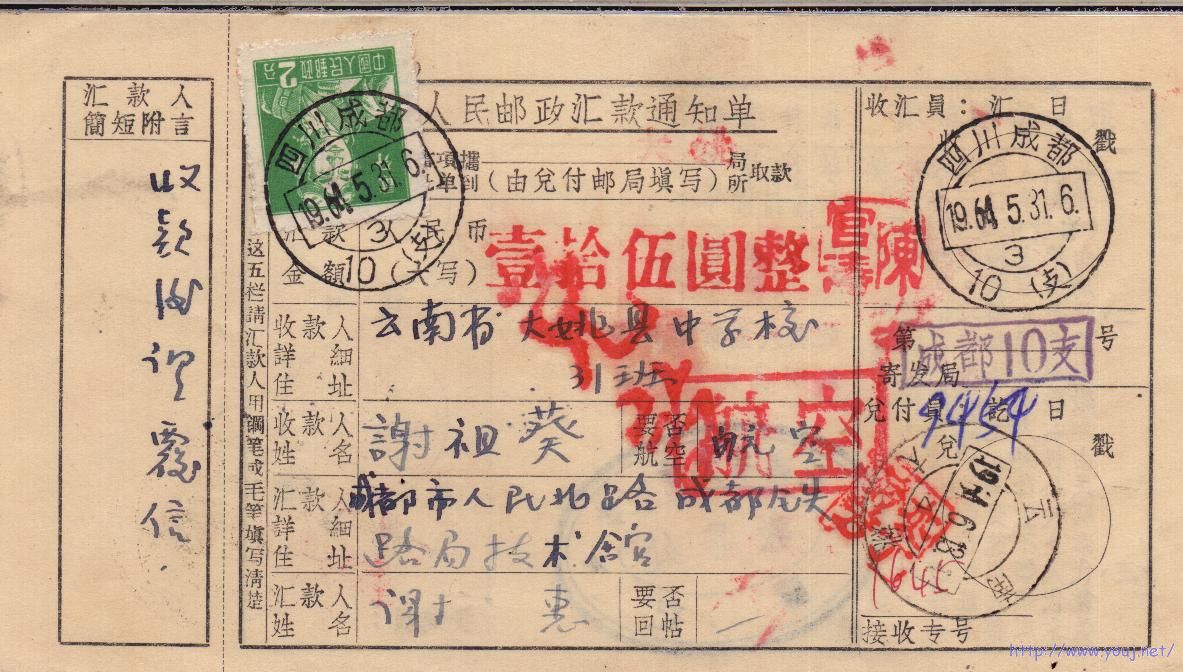 汇款人
簡短附言
收款后谓
霞信
中國人民郵政
2分
人民邮政汇款通知单
局
所
取款
单到（由兑付邮局填写）
四川成都
1961.5.31.6.
3
10（支）
这五栏請汇款人用鋼笔或毛笔填写清楚
汇款
金額
民币
（大写）
壹拾伍圓整
陳
收款人
詳細
住址
云南省大姚县中学校
31班
收款人
姓名
謝祖葵
要否
航空
航空
航空
汇款人
詳細
住址
成都市人民北路成都铁
路局技术舍宫
汇款人
姓名
谢惠
要否
回帖
一
收汇員：汇日
戳
四川成都
1961.5.31.6.
3
10（支）
第号
成都10支
寄发局
兑付員：訖日
戳
9454
接收专号
http://www.youj.net/